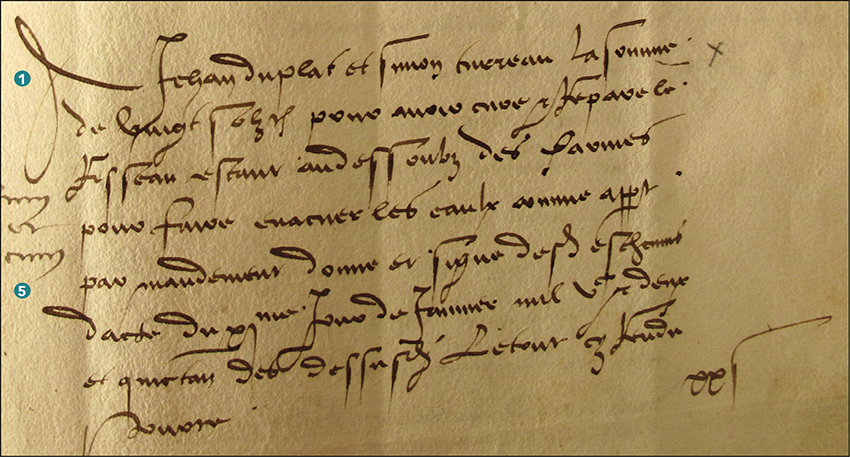 A Jehan duplat et simon turreau la somme
de vingt solz tz pour avoir cure & Repare le
Risseau estant au dessoubz des Carmes
pour faire evacuer les eaulx comme appt
par mandement donne et signe desd eschevins
dacte du xme Jour de Janvier mil Vc & deux
et quictan des dessusd Retour cy Rendu
xxs